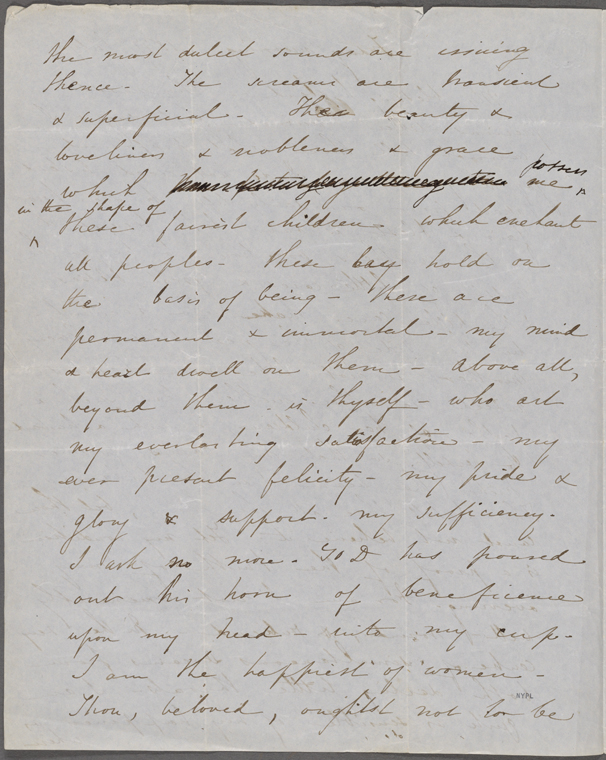 the most dulcet sounds are issuing
thence. The screams are transient
& superficial. Then beauty &
loveliness & nobleness & grace
which possess me
in the shape of
these fairest children which enchant
all peoples. these lay hold on
the basis of being — these are
permanent & immortal — my mind
& heart dwell on them — Above all,
beyond them is thyself — who art
my everlasting satisfaction — my
ever present felicity — my pride &
glory & support. my sufficiency.
I ask no more. GOD has poured
out his horn of beneficence
upon my head — into my cup.
I am the happiest of women —
Thou, beloved, oughtst not to be
NYPL